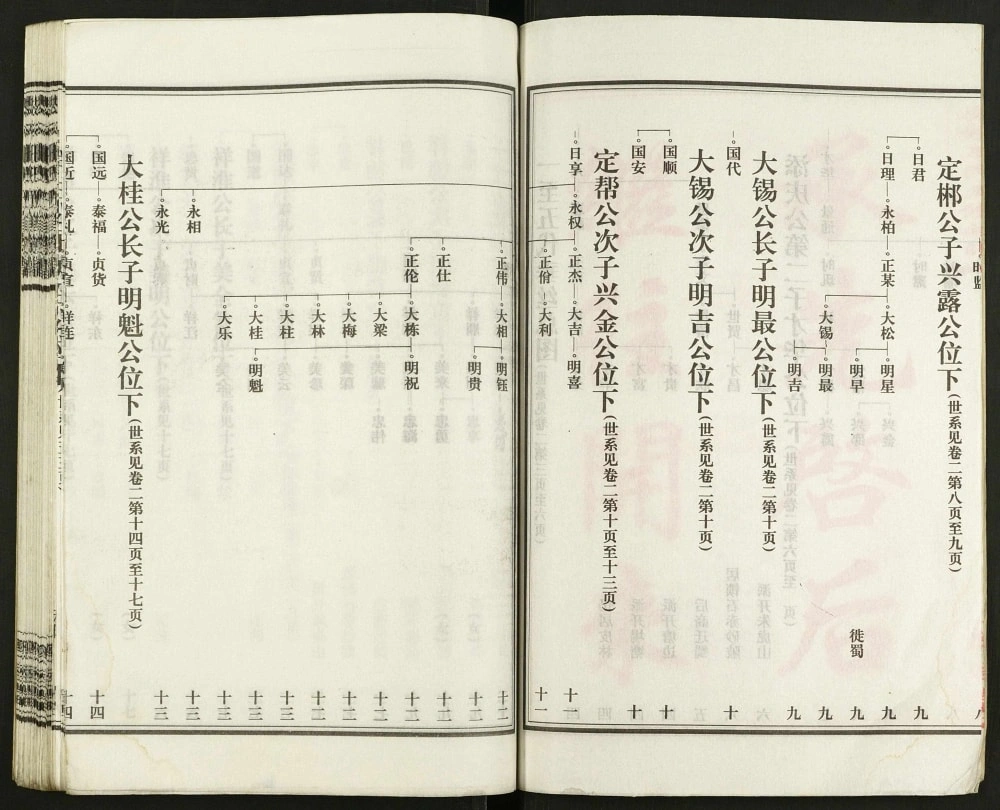 定郴公子兴露公位下(世系见卷二第八页至九页)
日君 九
日理 永柏 正某 大松 明星 九
明早 徙蜀 九
大锡 明最 九
明吉 九
大锡公长子明最公位下(世系见卷二第十页)
国代 十
大锡公次子明吉公位下(世系见卷二第十页)
国顺 十
国安 十
定帮公次子兴金公位下(世系见卷二第十页至十三页)
日享 永权 正杰 大吉 明喜 十一
大利 十一
正伟 大相 明钰 十二
明贵 十二
正仕 十二
正伦 大栋 明祝 十二
大梁 十二
大梅 十二
大林 十三
大柱 十三
大桂 明魁 十三
大乐 十三
永相 十三
永光 十三
大桂公长子明魁公位下(世系见卷二第十四页至十七页)
国远 泰福 贞货 十四
国近 泰礼 贞宣 祥连 十四